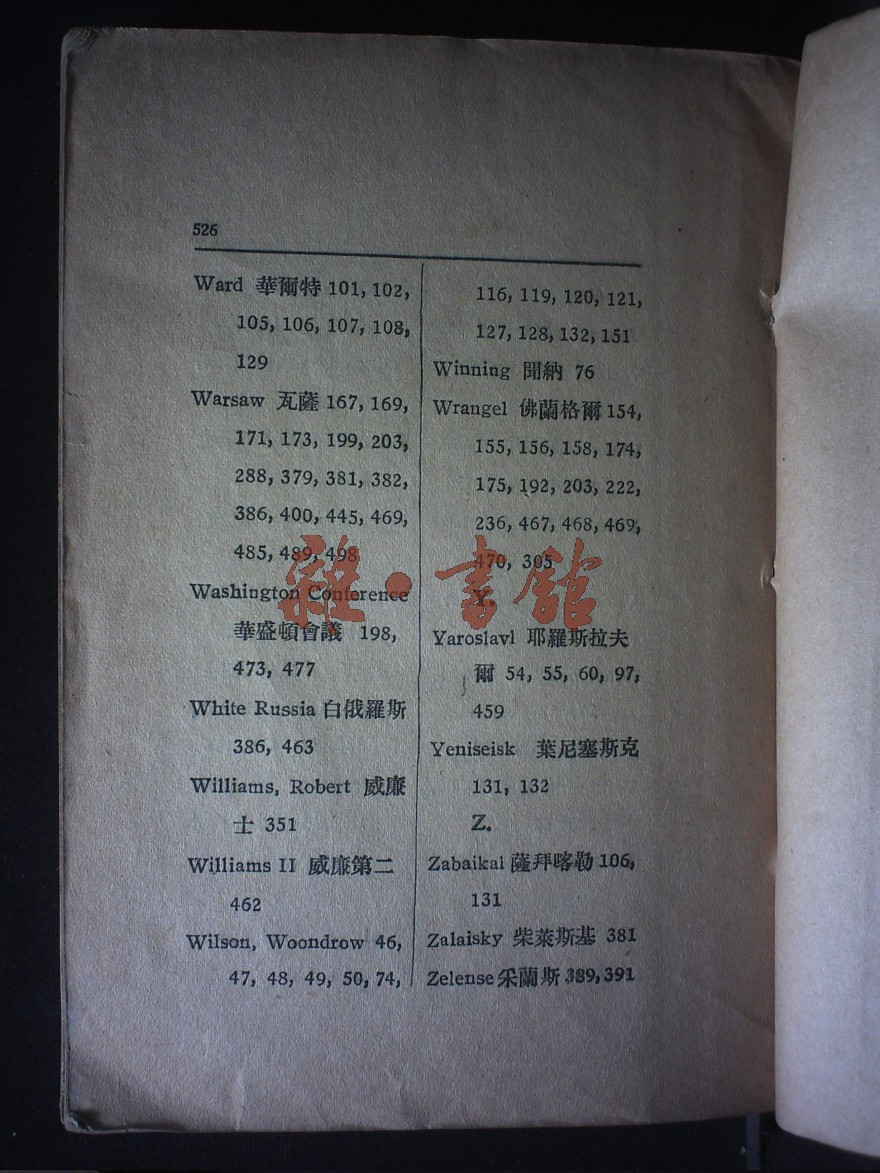 526
Ward 華爾特 101, 102,
105, 106, 107, 108,
129
Warsaw 瓦薩 167, 169,
171, 173, 199, 203,
288, 379, 381, 382,
386, 400, 445, 469,
485, 489, 498
Washington Conference
華盛頓會議 198,
473, 477
White Russia 白俄羅斯
386, 463
Williams, Robert 威廉
士 351
Williams II 威廉第二
462
Wilson, Woondrow 46,
47, 48, 49, 50, 74,
116, 119, 120, 121,
127, 128, 132, 151
Winning 聞納 76
Wrangel 佛蘭格爾 154,
155, 156, 158, 174,
175, 192, 203, 222,
236, 467, 468, 469,
470, 305
Y.
Yaroslavl 耶羅斯拉夫
爾 54, 55, 60, 97,
459
Yeniseisk 葉尼塞斯克
131, 132
Z.
Zabaikal 薩拜喀勒 106,
131
Zalaisky 柴萊斯基 381
Zelense 采蘭斯 389, 391
雜·書館